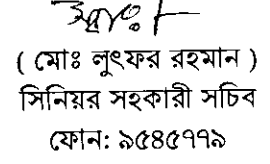 স্বাঃ-
( মোঃ লুৎফর রহমান )
সিনিয়র সহকারী সচিব
ফোন: ৯৫৪৫৭৭৯